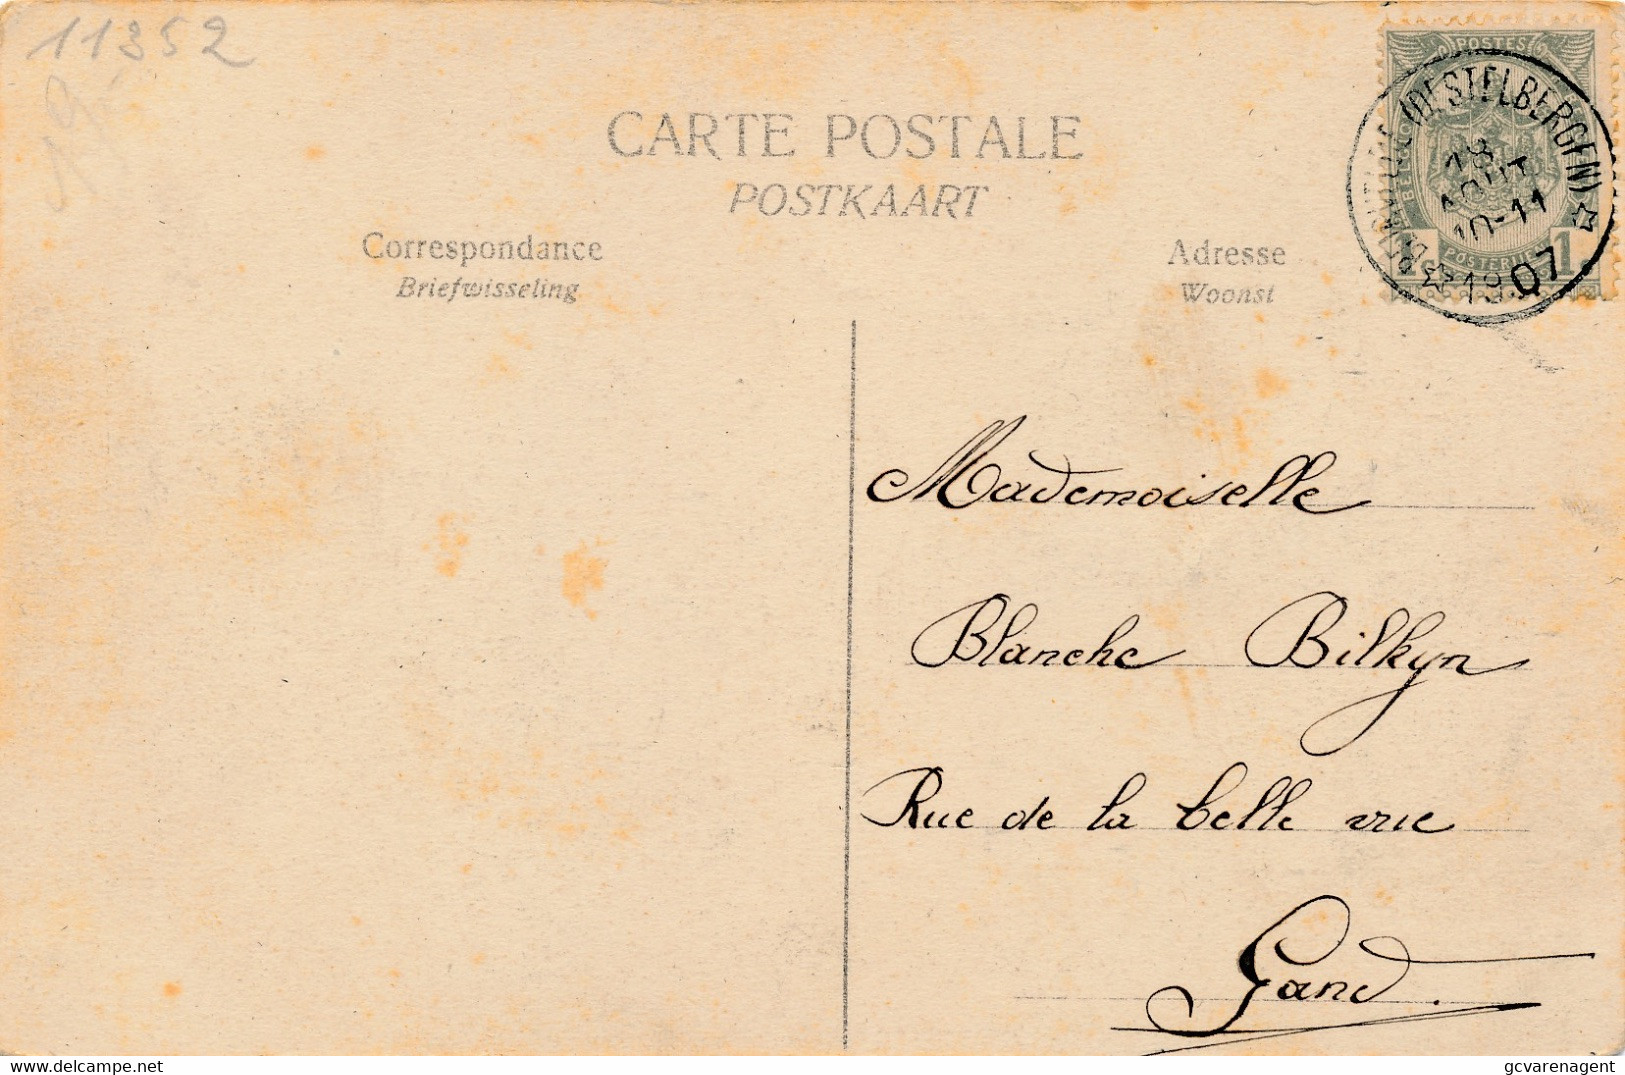 11352
CARTE POSTALE
POSTKAART
Correspondance
Briefwisseling
Adresse
Woonst
POSTES
(DESTELBERGEN)
18
AOUT
10-11
1907
1c 1c
POSTERIJEN
Mademoiselle
Blanche Bilkyn
Rue de la belle vue
Gand.
delcampe.net
gcvarenagent